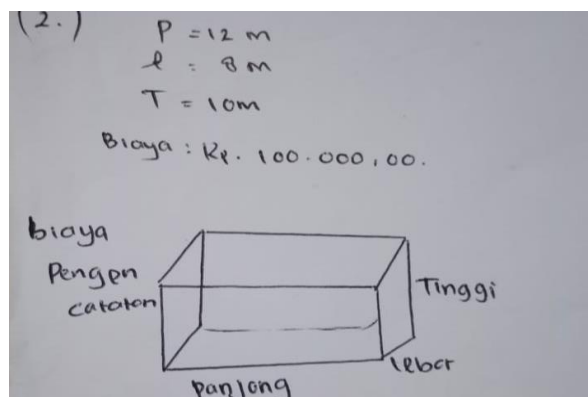 (2.)
P = 12 m
l = 8 m
T = 10m
Biaya : Rp. 100.000,00.
biaya
Pengen
cataton
Tinggi
lebar
Panjong